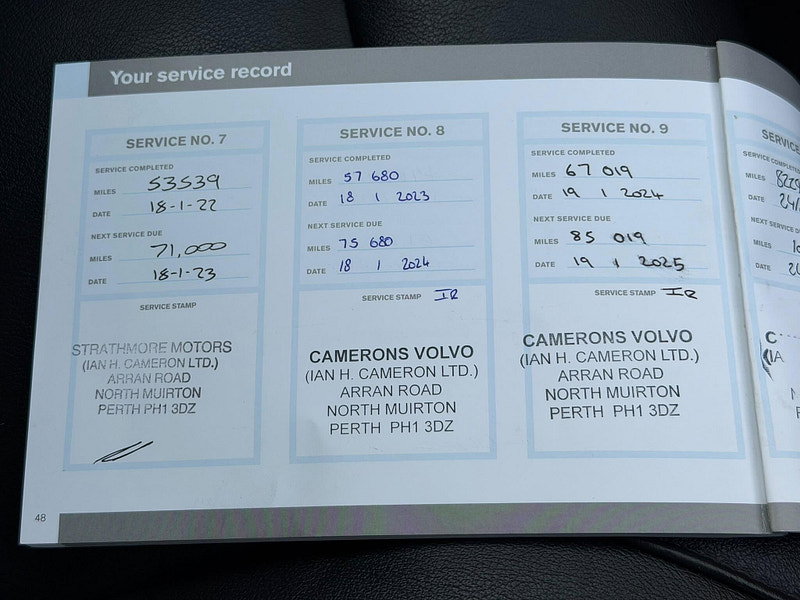 Your service record
SERVICE NO. 7
SERVICE COMPLETED
MILES 53539
DATE 18-1-22
NEXT SERVICE DUE
MILES 71,000
DATE 18-1-23
SERVICE STAMP
STRATHMORE MOTORS
(IAN H. CAMERON LTD.)
ARRAN ROAD
NORTH MUIRTON
PERTH PH1 3DZ
SERVICE NO. 8
SERVICE COMPLETED
MILES 57 680
DATE 18 1 2023
NEXT SERVICE DUE
MILES 75 680
DATE 18 1 2024
SERVICE STAMP IR
CAMERONS VOLVO
(IAN H. CAMERON LTD.)
ARRAN ROAD
NORTH MUIRTON
PERTH PH1 3DZ
SERVICE NO. 9
SERVICE COMPLETED
MILES 67 019
DATE 19 1 2024
NEXT SERVICE DUE
MILES 85 019
DATE 19 1 2025
SERVICE STAMP IR
CAMERONS VOLVO
(IAN H. CAMERON LTD.)
ARRAN ROAD
NORTH MUIRTON
PERTH PH1 3DZ
SERVICE
SERVICE COMPLETED
MILES
DATE
NEXT SERVICE
MILES
DATE
48